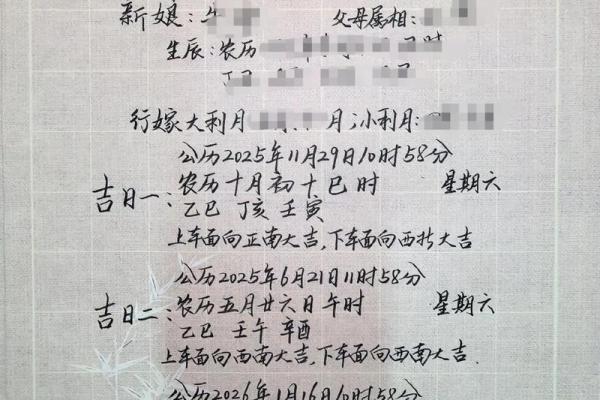 新娘： 父母属相：
生辰：农历 时
行嫁大利月 月；小利月：
公历2025年11月29日10时58分
吉日一：农历十月初十巳时 星期六
乙巳 丁亥 壬寅
上车面向正南大吉，下车面向西 大吉
公历2025年6月21日11时58分
吉日二：农历五月廿六日午时 星期六
乙巳 壬午 辛酉
上车面向西南大吉，下车面向西南大吉.
公历2026年1月16日10时58分